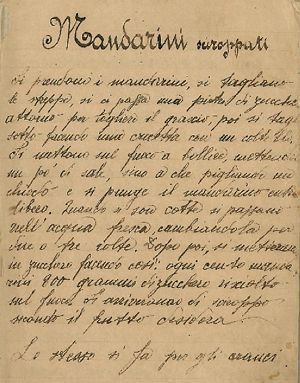 Mandarini siroppati
Si prendono i mandarini, si tagliano
le stoppe, si ci passa una pietra di zucchero
attorno per togliere il graxio, poi si taglia
sotto facendo una crocetta con un coltello
Si mettono sul fuoco a bollire, mettendo
un po di sale, sino a che pigliando un
chiodo e si punge il mandarino entra
libero. Quando si son cotte si passano
nell'acqua fresca, cambiandola per
due o tre volte. Dopo poi, si metteranno
in zucchero facendo così: ogni cento manda
rini 800 grammi di zucchero sciolto
sul fuoco si
secondo il frutto
Lo stesso si fà per gli aranci.